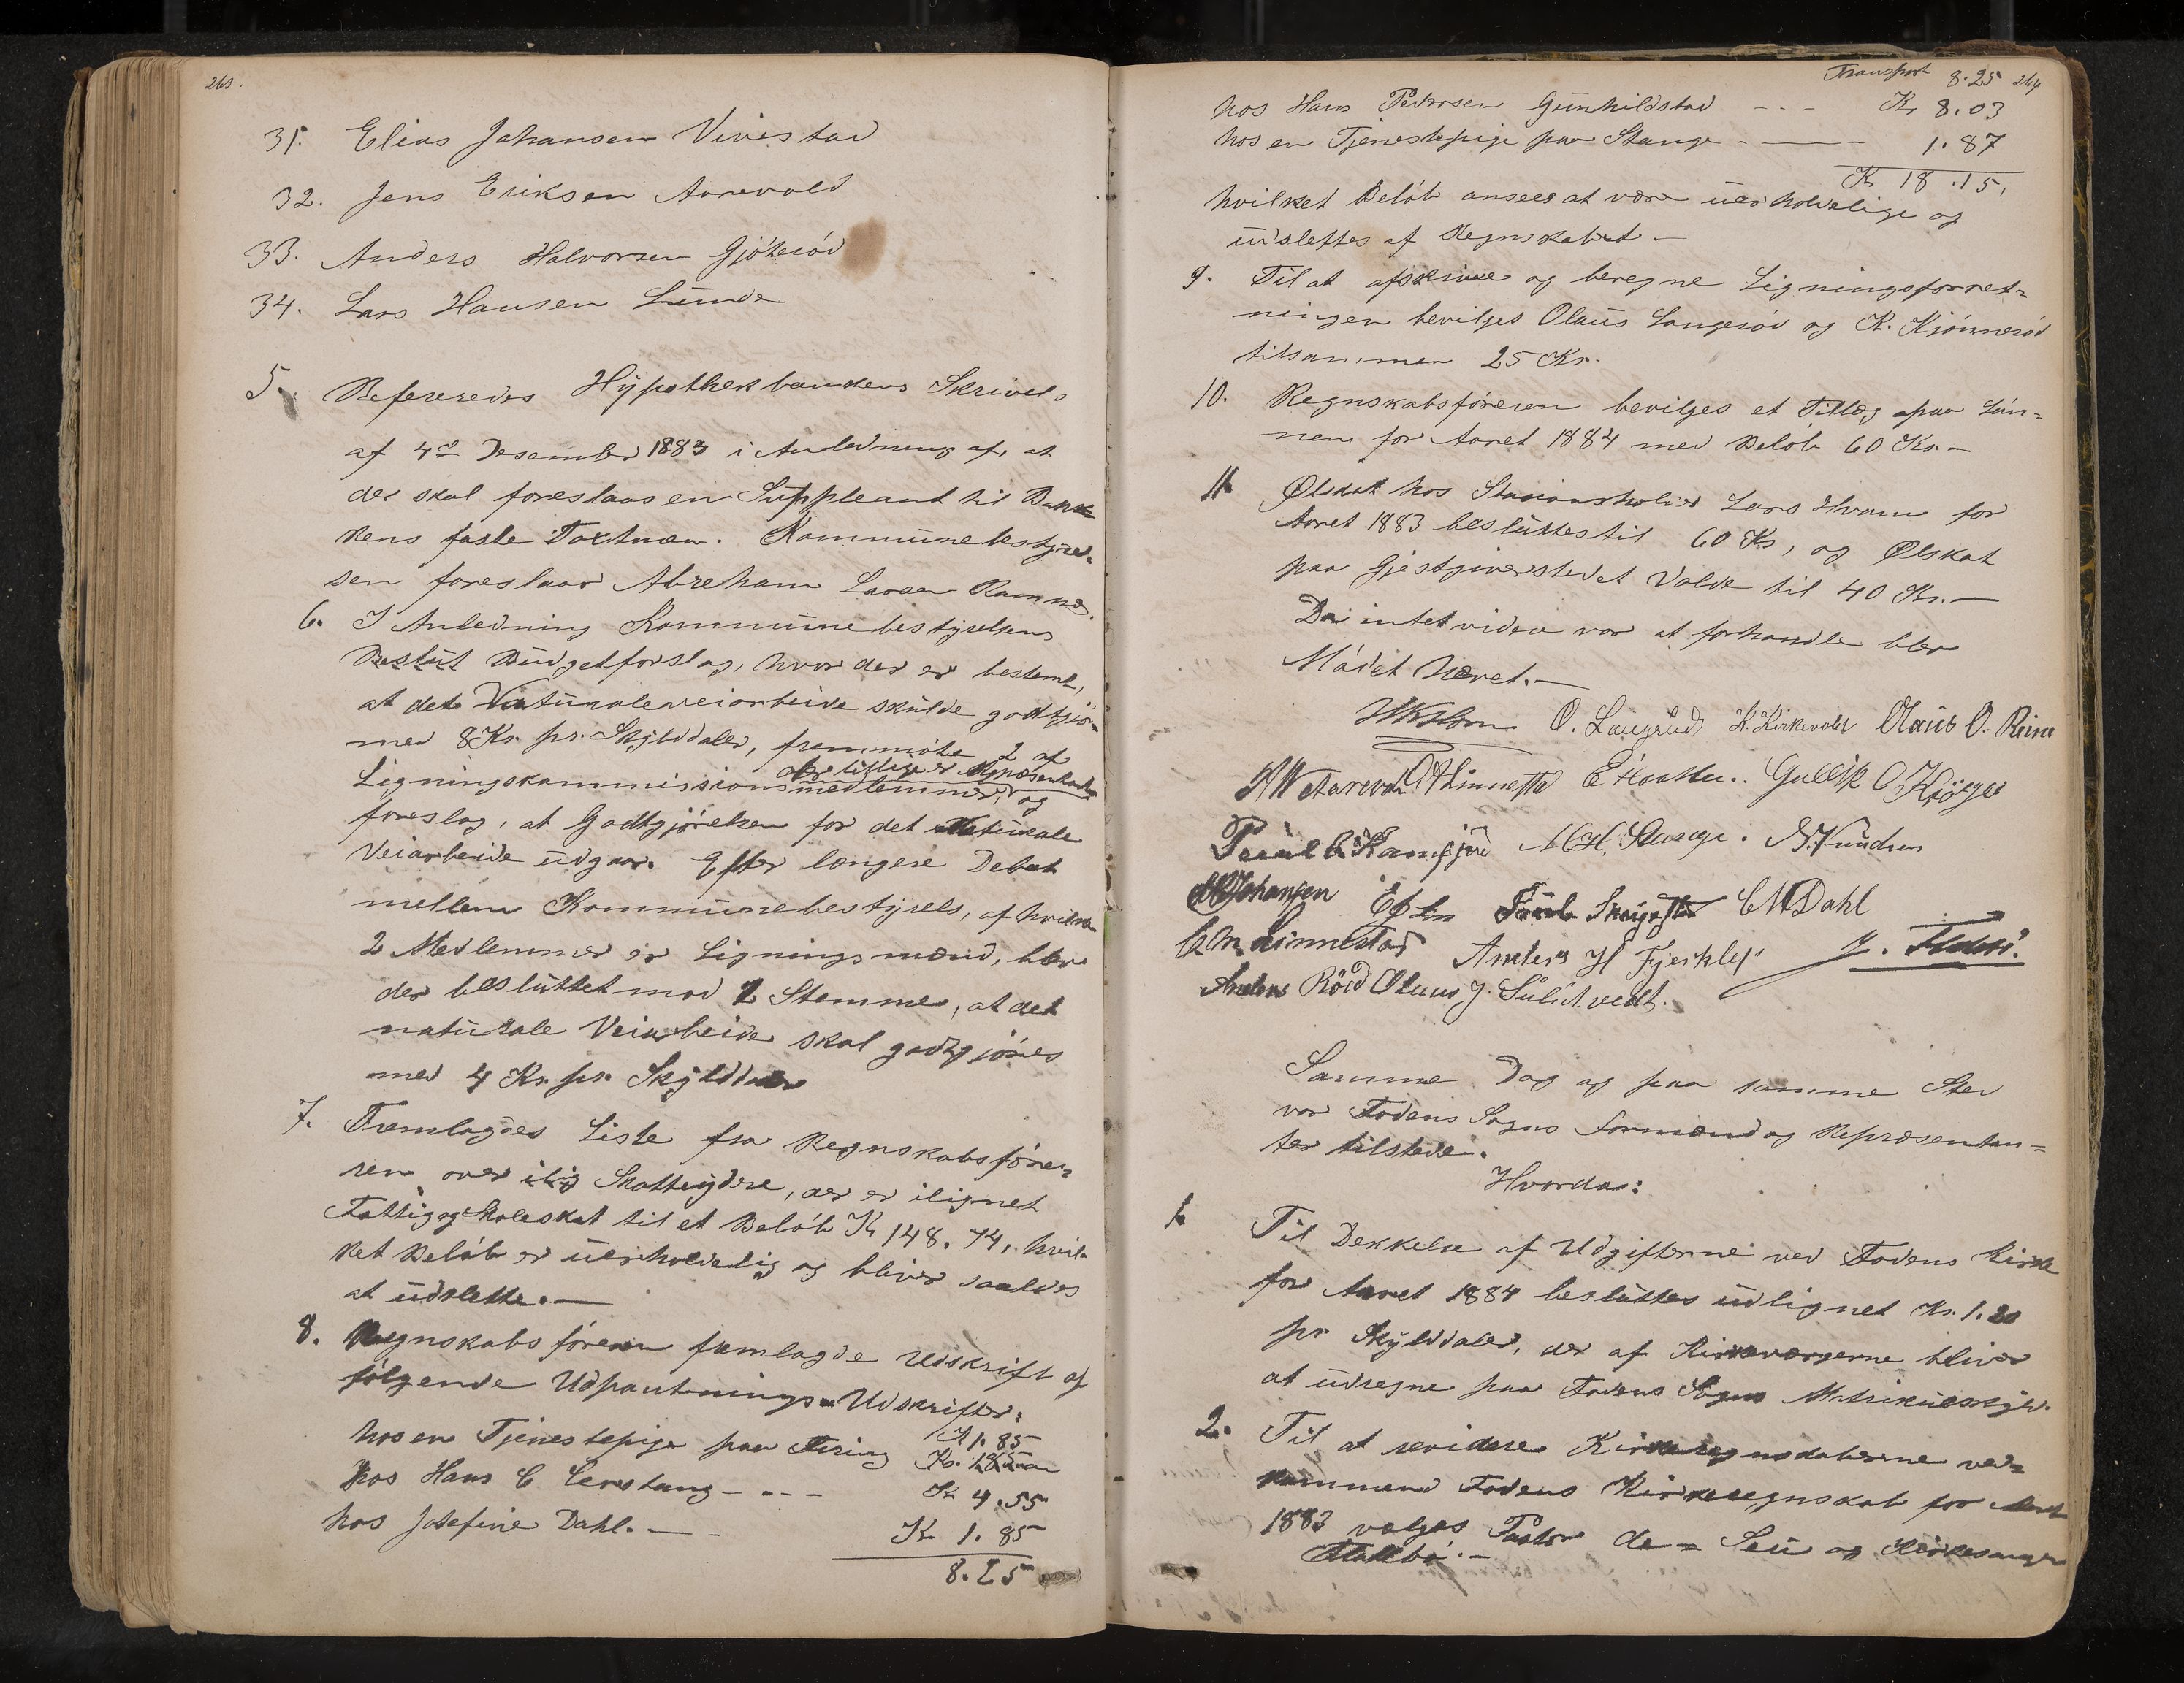 263.
31. Elias Johansen Vivestad
32. Jens Eriksen Aarevold
33. Anders Halvorsen Gjöterød
34. Lars Hansen Lunde
5. Refereredes Hypothekbankens Skrivels
af 4de Desember 1883 i Anledning af, at
der skal foreslaaes en Suppleant til Bank-
kens faste Taxtmæn. Kommunebestyrel-
sen foreslaar Abreham Larsen Ramnæs.
6. I Anledning Kommunebestyrelsens
Beslut Budgetforslag, hvor der er bestemt,
at det Naturaleveiarbeide skulde godtgjöres
med 8 Kr. pr. Skylddaler, fremmøtte 2 af
Ligningskommissionsmedlemmer, og
foreslog, at Godtgjörelsen for det Naturale
Veiarbeide udgaar. Efter længere Debat
mellem Kommunebestyrels, af hvilke
2 Medlemmer er Ligningsmænd, blev
der besluttet mod 2 Stemme, at det
naturale Veiarbeide skal godtgjöres
med 4 Kr. pr. Skylddaler
7. Fremlagdes Liste fra Regnskabsföre-
ren over Skatteydere, der er ilignet
Fattig og Skoleskat til et Belöb Kr 148.74, hvil-
ket Belöb er uerholdelig og bliver saaledes
at udslette. —
8. Regnskabsföreren fremlagde Udskrift af
følgende Udpantnings-Udskrifter:
hos en Tjenestepige paa Kr 1.85
hos Hans C - - - Kr 4.55
hos Josefine Dahl. — - Kr 1.85
8.25
Transport 8.25 264
hos Hans Pedersen Gunhildstad - - - Kr 8.03
hos en Tjenestepige paa Stange - — - 1.87
Kr 18.15,
hvilket Belöb ansees at være uerholdelige og
udslettes af Regnskabet. —
9. Til at afskrive og beregne Ligningsforret-
ningen bevilges Olaus Langeröd og K. Kjönneröd
tilsammen 25 Kr.
10. Regnskabsföreren bevilges et Tillæg paa Løn-
nen for Aaret 1884 med Beløb 60 Kr. —
11. Ølskat hos Stasionsholder Lars Hvam for
Aaret 1883 besluttes til 60 Kr, og Ølskat
paa Gjestgiverstedet Valde til 40 Kr. —
Da intet videre var at forhandle blev
Mödet hævet. —
O. Langrud K. Kirkevold Olaus O.
Gullik O
M. H. Stange. Knudsen
Johansen C M Dahl
Linnestad Anders H
Anders Röed Olaus J.
Samme Dag og paa samme Sted
var Fodens Sogns Formænd og Repræsentan-
ter tilstede.
Hvorda:
1. Til Dekkelse af Udgifterne ved Fodens Kirke
for Aaret 1884 besluttes udlignet Kr. 1.20
pr Skylddaler, der af Kirkeværgerne bliver
at udregne paa Fodens Sogns Matrikulskyld.
2. Til at revidere Kirkeregnskaberne ved-
kommend Fodens Kirkeregnskab for Aaret
1883 vælges Pastor de = Seu og Kirkesanger